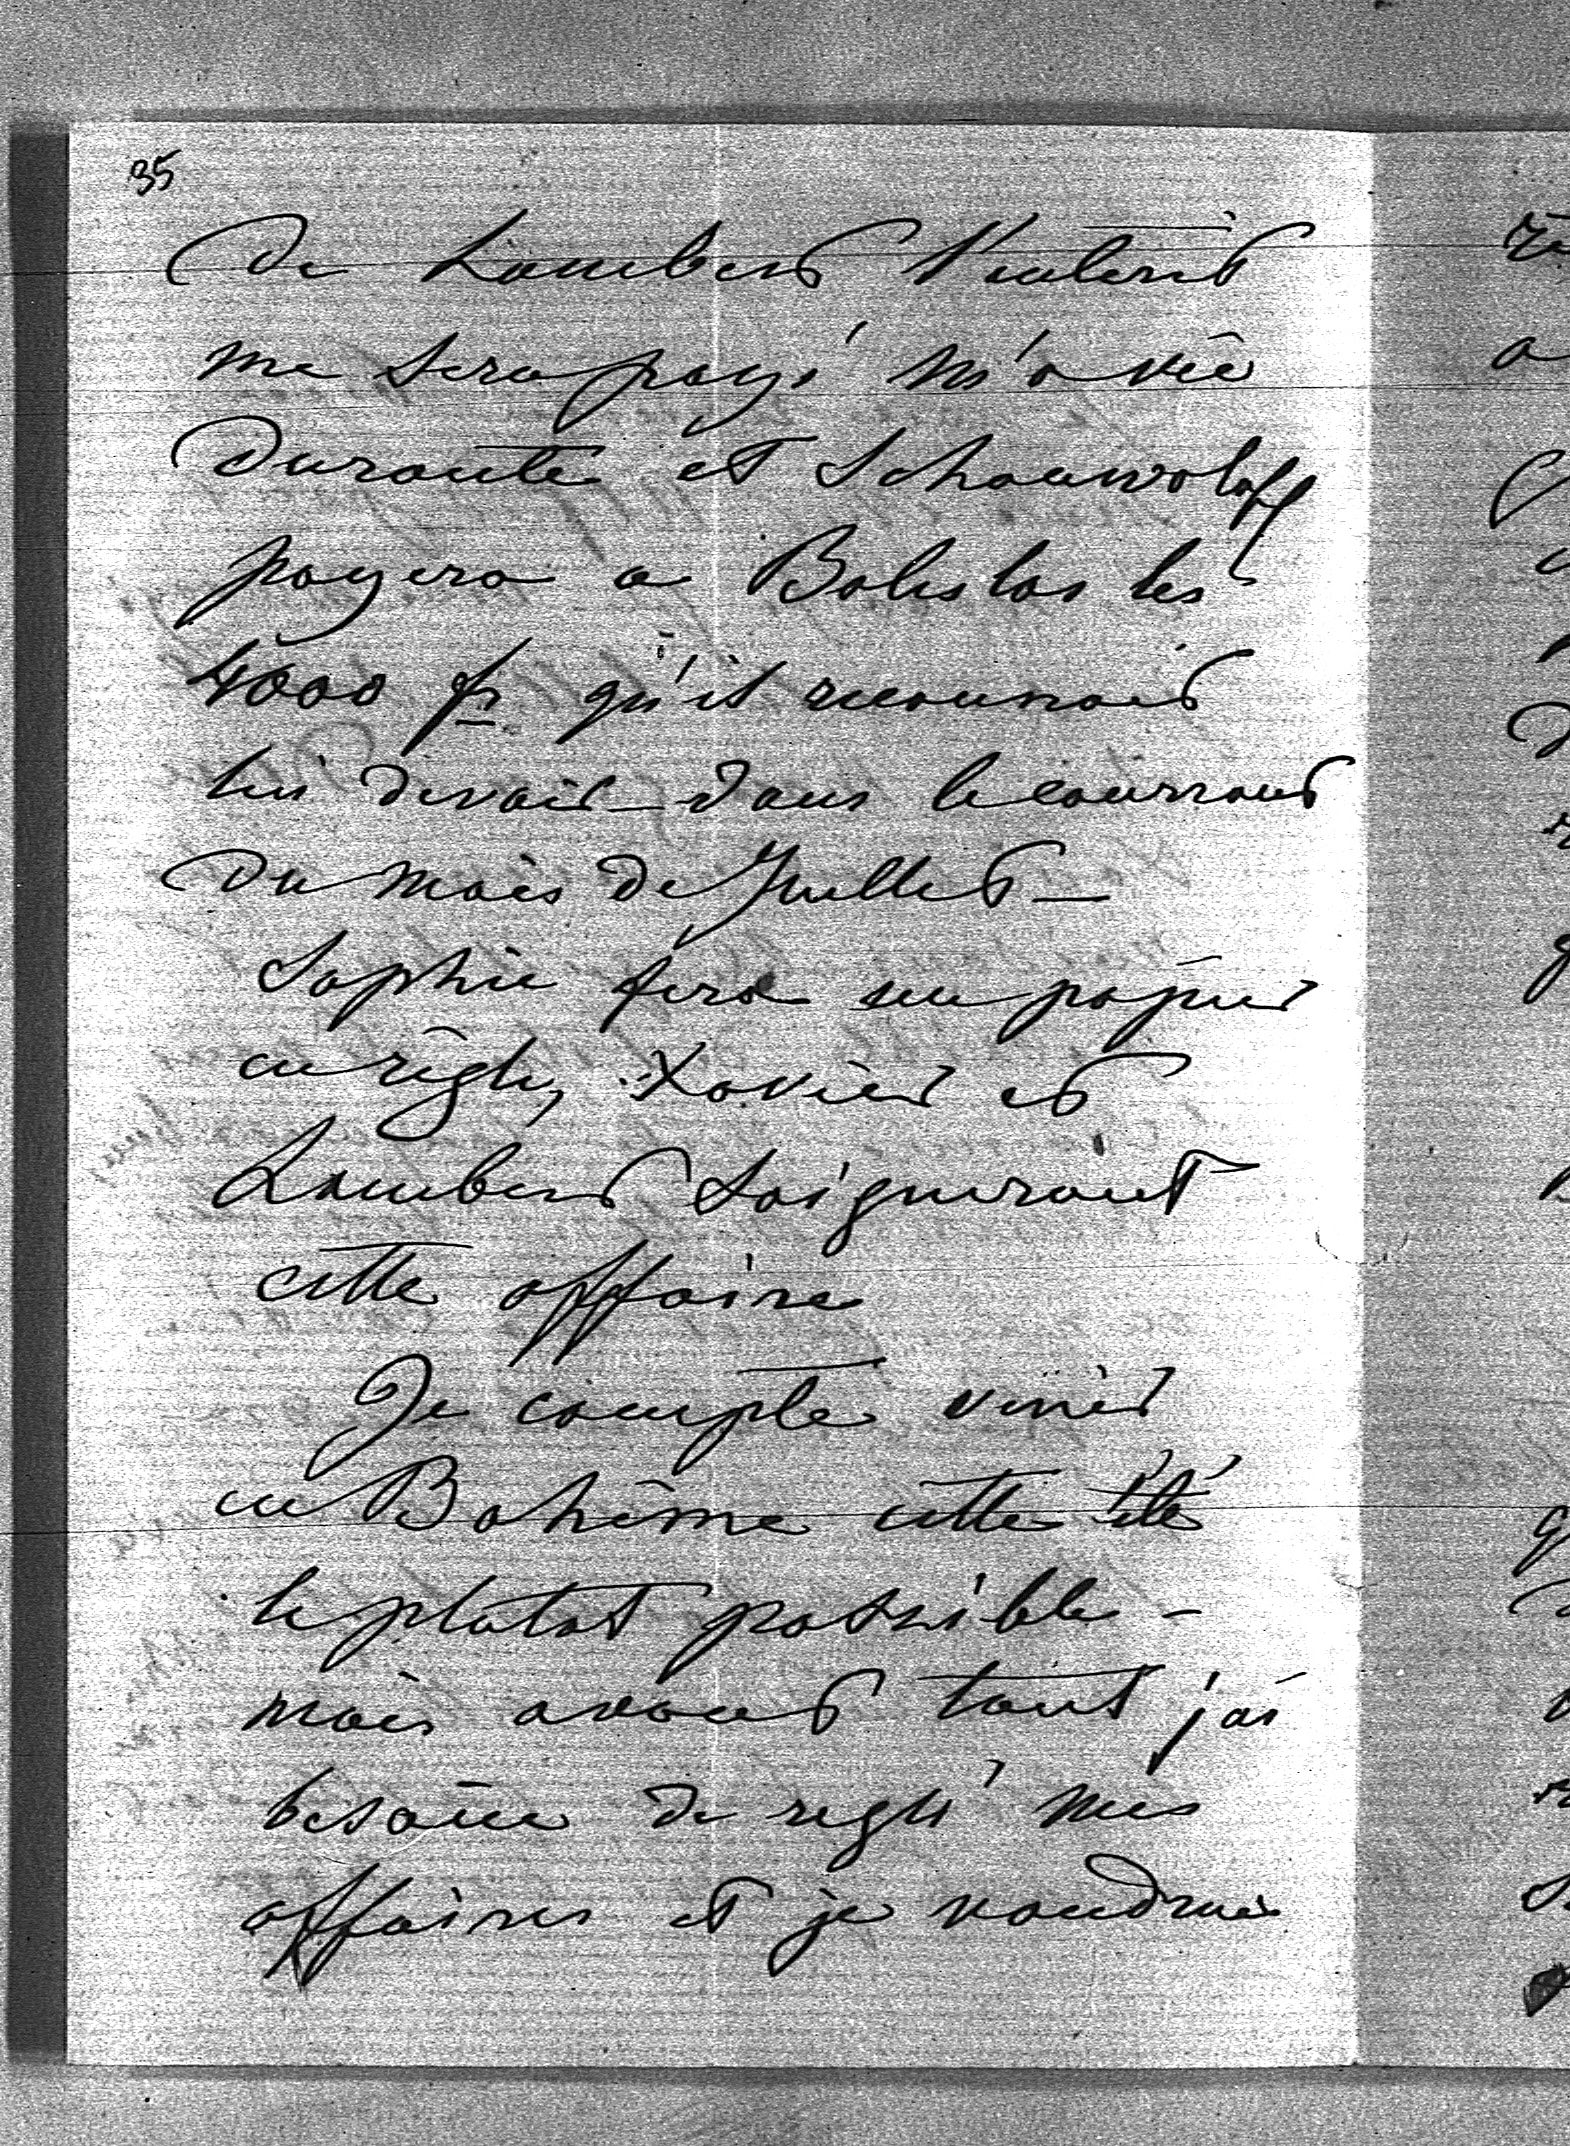 35
de Lambert l'intérêt
me sera payé m'a vie
durante et Schouwoloff
payera a Boleslas les
4000 fr qu'il reconnais
lui devoir – dans le courrant
du mois de Juillet –
Sophie fera un papier
en règle, Xavier et
Lambert soigneront
cette affaire
Je compte venir
en Bohême cette été
le plutot possible –
mais avant tout j'ai
besoin de reglé mes
affaires et je voudrai